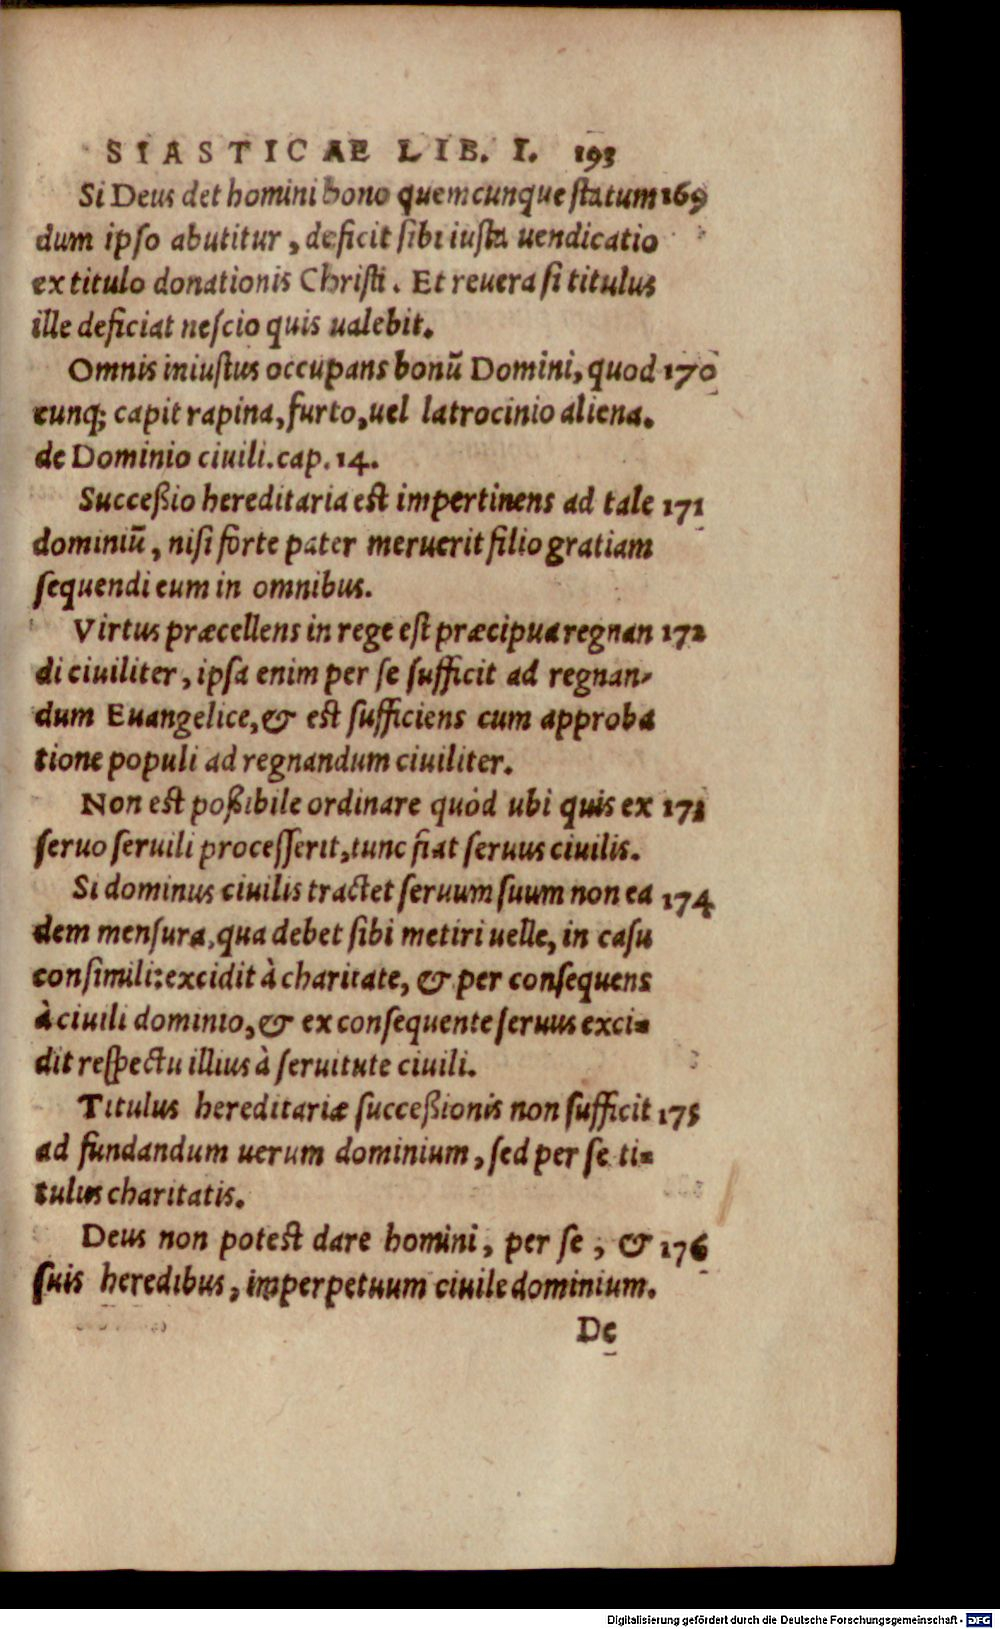 SIASTICAE LIB. I. 193
Si Deus det homini bono quemcunque statum 169
dum ipso abutitur, deficit sibi iusta uendicatio
ex titulo donationis Christi. Et reuera si titulus
ille deficiat nescio quis ualebit.
Omnis iniustus occupans bonū Domini, quod 170
cunq; capit rapina, furto, uel latrocinio aliena.
de Dominio ciuili. cap. 14.
Succeßio hereditaria est impertinens ad tale 171
dominiū, nisi forte pater meruerit filio gratiam
sequendi eum in omnibus.
Virtus præcellens in rege est præcipua regnan 172
di ciuiliter, ipsa enim per se sufficit ad regnan-
dum Euangelice, & est sufficiens cum approba
tione populi ad regnandum ciuiliter.
Non est poßibile ordinare quòd ubi quis ex 173
seruo seruili processerit, tunc fiat seruus ciuilis.
Si dominus ciuilis tractet seruum suum non ea 174
dem mensura, qua debet sibi metiri uelle, in casu
consimili: excidit à charitate, & per consequens
à ciuili dominio, & ex consequente seruus exci-
dit respectu illius à seruitute ciuili.
Titulus hereditariæ succeßionis non sufficit 175
ad fundandum uerum dominium, sed per se ti-
tulus charitatis.
Deus non potest dare homini, per se, & 176
suis heredibus, imperpetuum ciuile dominium.
De
Digitalisierung gefördert durch die Deutsche Forschungsgemeinschaft - DFG